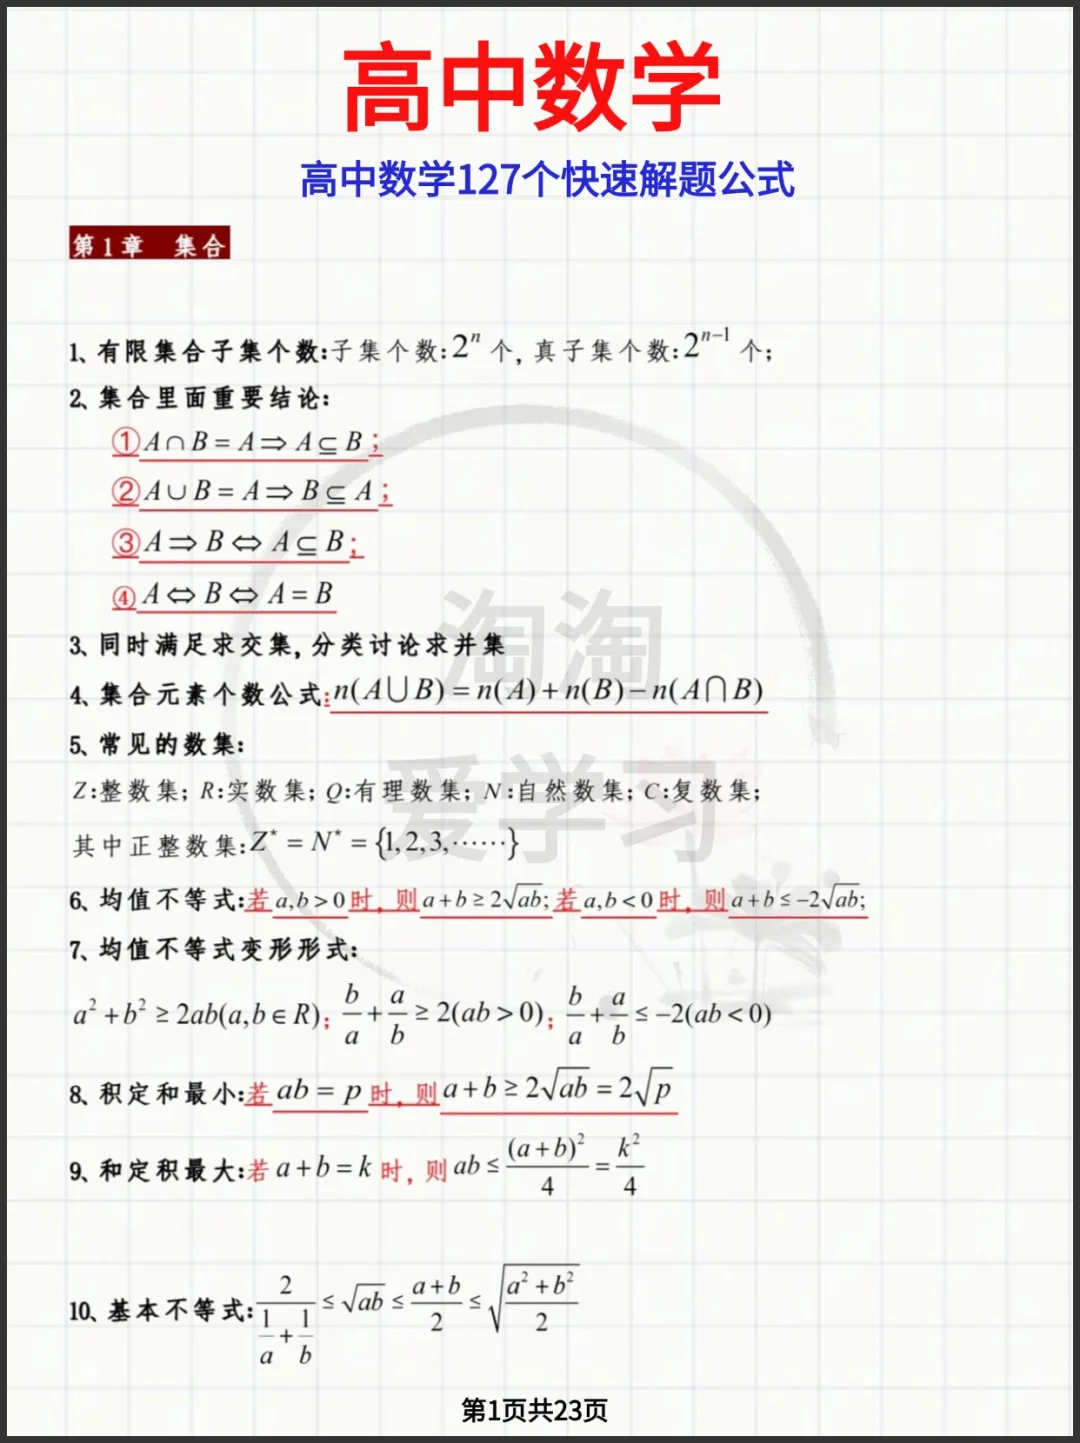 高中数学
高中数学127个快速解题公式
第1章 集合
1、有限集合子集个数:子集个数:2ⁿ个,真子集个数:2ⁿ⁻¹个;
2、集合里面重要结论:
①A∩B=A⇒A⊆B;
②A∪B=A⇒B⊆A;
③A⇒B⇔A⊆B;
④A⇔B⇔A=B
3、同时满足求交集,分类讨论求并集
4、集合元素个数公式:n(A⋃B)=n(A)+n(B)−n(A⋂B)
5、常见的数集:
Z:整数集;R:实数集;Q:有理数集;N:自然数集;C:复数集;
其中正整数集:Z*=N*={1,2,3,……}
6、均值不等式:若a,b>0时,则a+b≥2√ab;若a,b<0时,则a+b≤−2√ab;
7、均值不等式变形形式:
a²+b²≥2ab(a,b∈R);b/a+a/b≥2(ab>0);b/a+a/b≤−2(ab<0)
8、积定和最小:若ab=p时,则a+b≥2√ab=2√p
9、和定积最大:若a+b=k时,则ab≤(a+b)²/4=k²/4
10、基本不等式:2/(1/a+1/b)≤√ab≤(a+b)/2≤√((a²+b²)/2)
淘淘
爱学习
第1页共23页